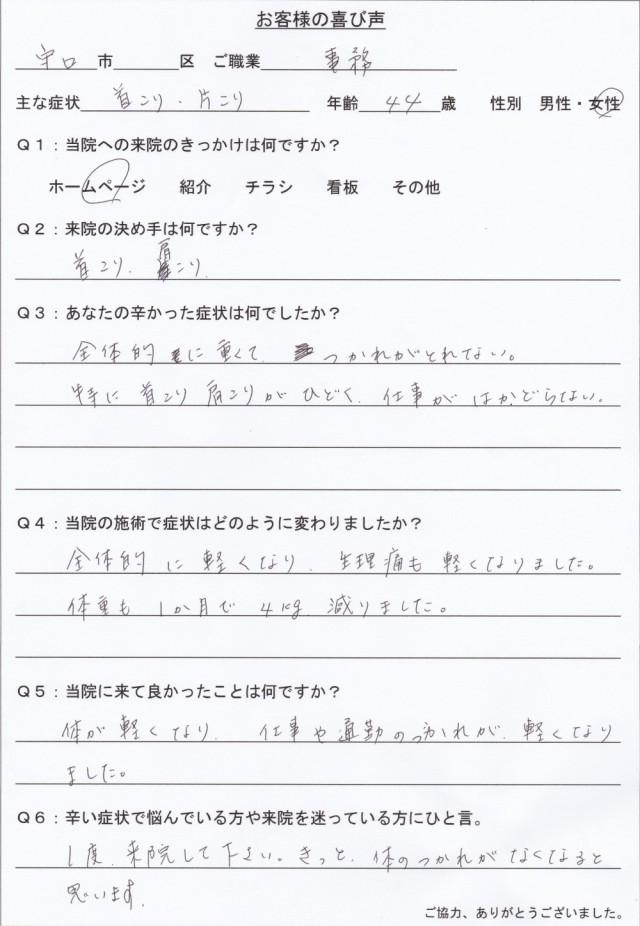 お客様の喜び声
守口市 区 ご職業 事務
主な症状 首こり・片こり 年齢 44 歳 性別 男性・女性
Q1：当院への来院のきっかけは何ですか？
ホームページ 紹介 チラシ 看板 その他
Q2：来院の決め手は何ですか？
首こり、肩こり
Q3：あなたの辛かった症状は何でしたか？
全体的に重くて、つかれがとれない。
特に首こり肩こりがひどく、仕事がはかどらない。
Q4：当院の施術で症状はどのように変わりましたか？
全体的に軽くなり、生理痛も軽くなりました。
体重も1か月で4kg減りました。
Q5：当院に来て良かったことは何ですか？
体が軽くなり、仕事や通勤のつかれが、軽くなり
ました。
Q6：辛い症状で悩んでいる方や来院を迷っている方にひと言。
1度、来院して下さい。きっと、体のつかれがなくなると
思います。
ご協力、ありがとうございました。